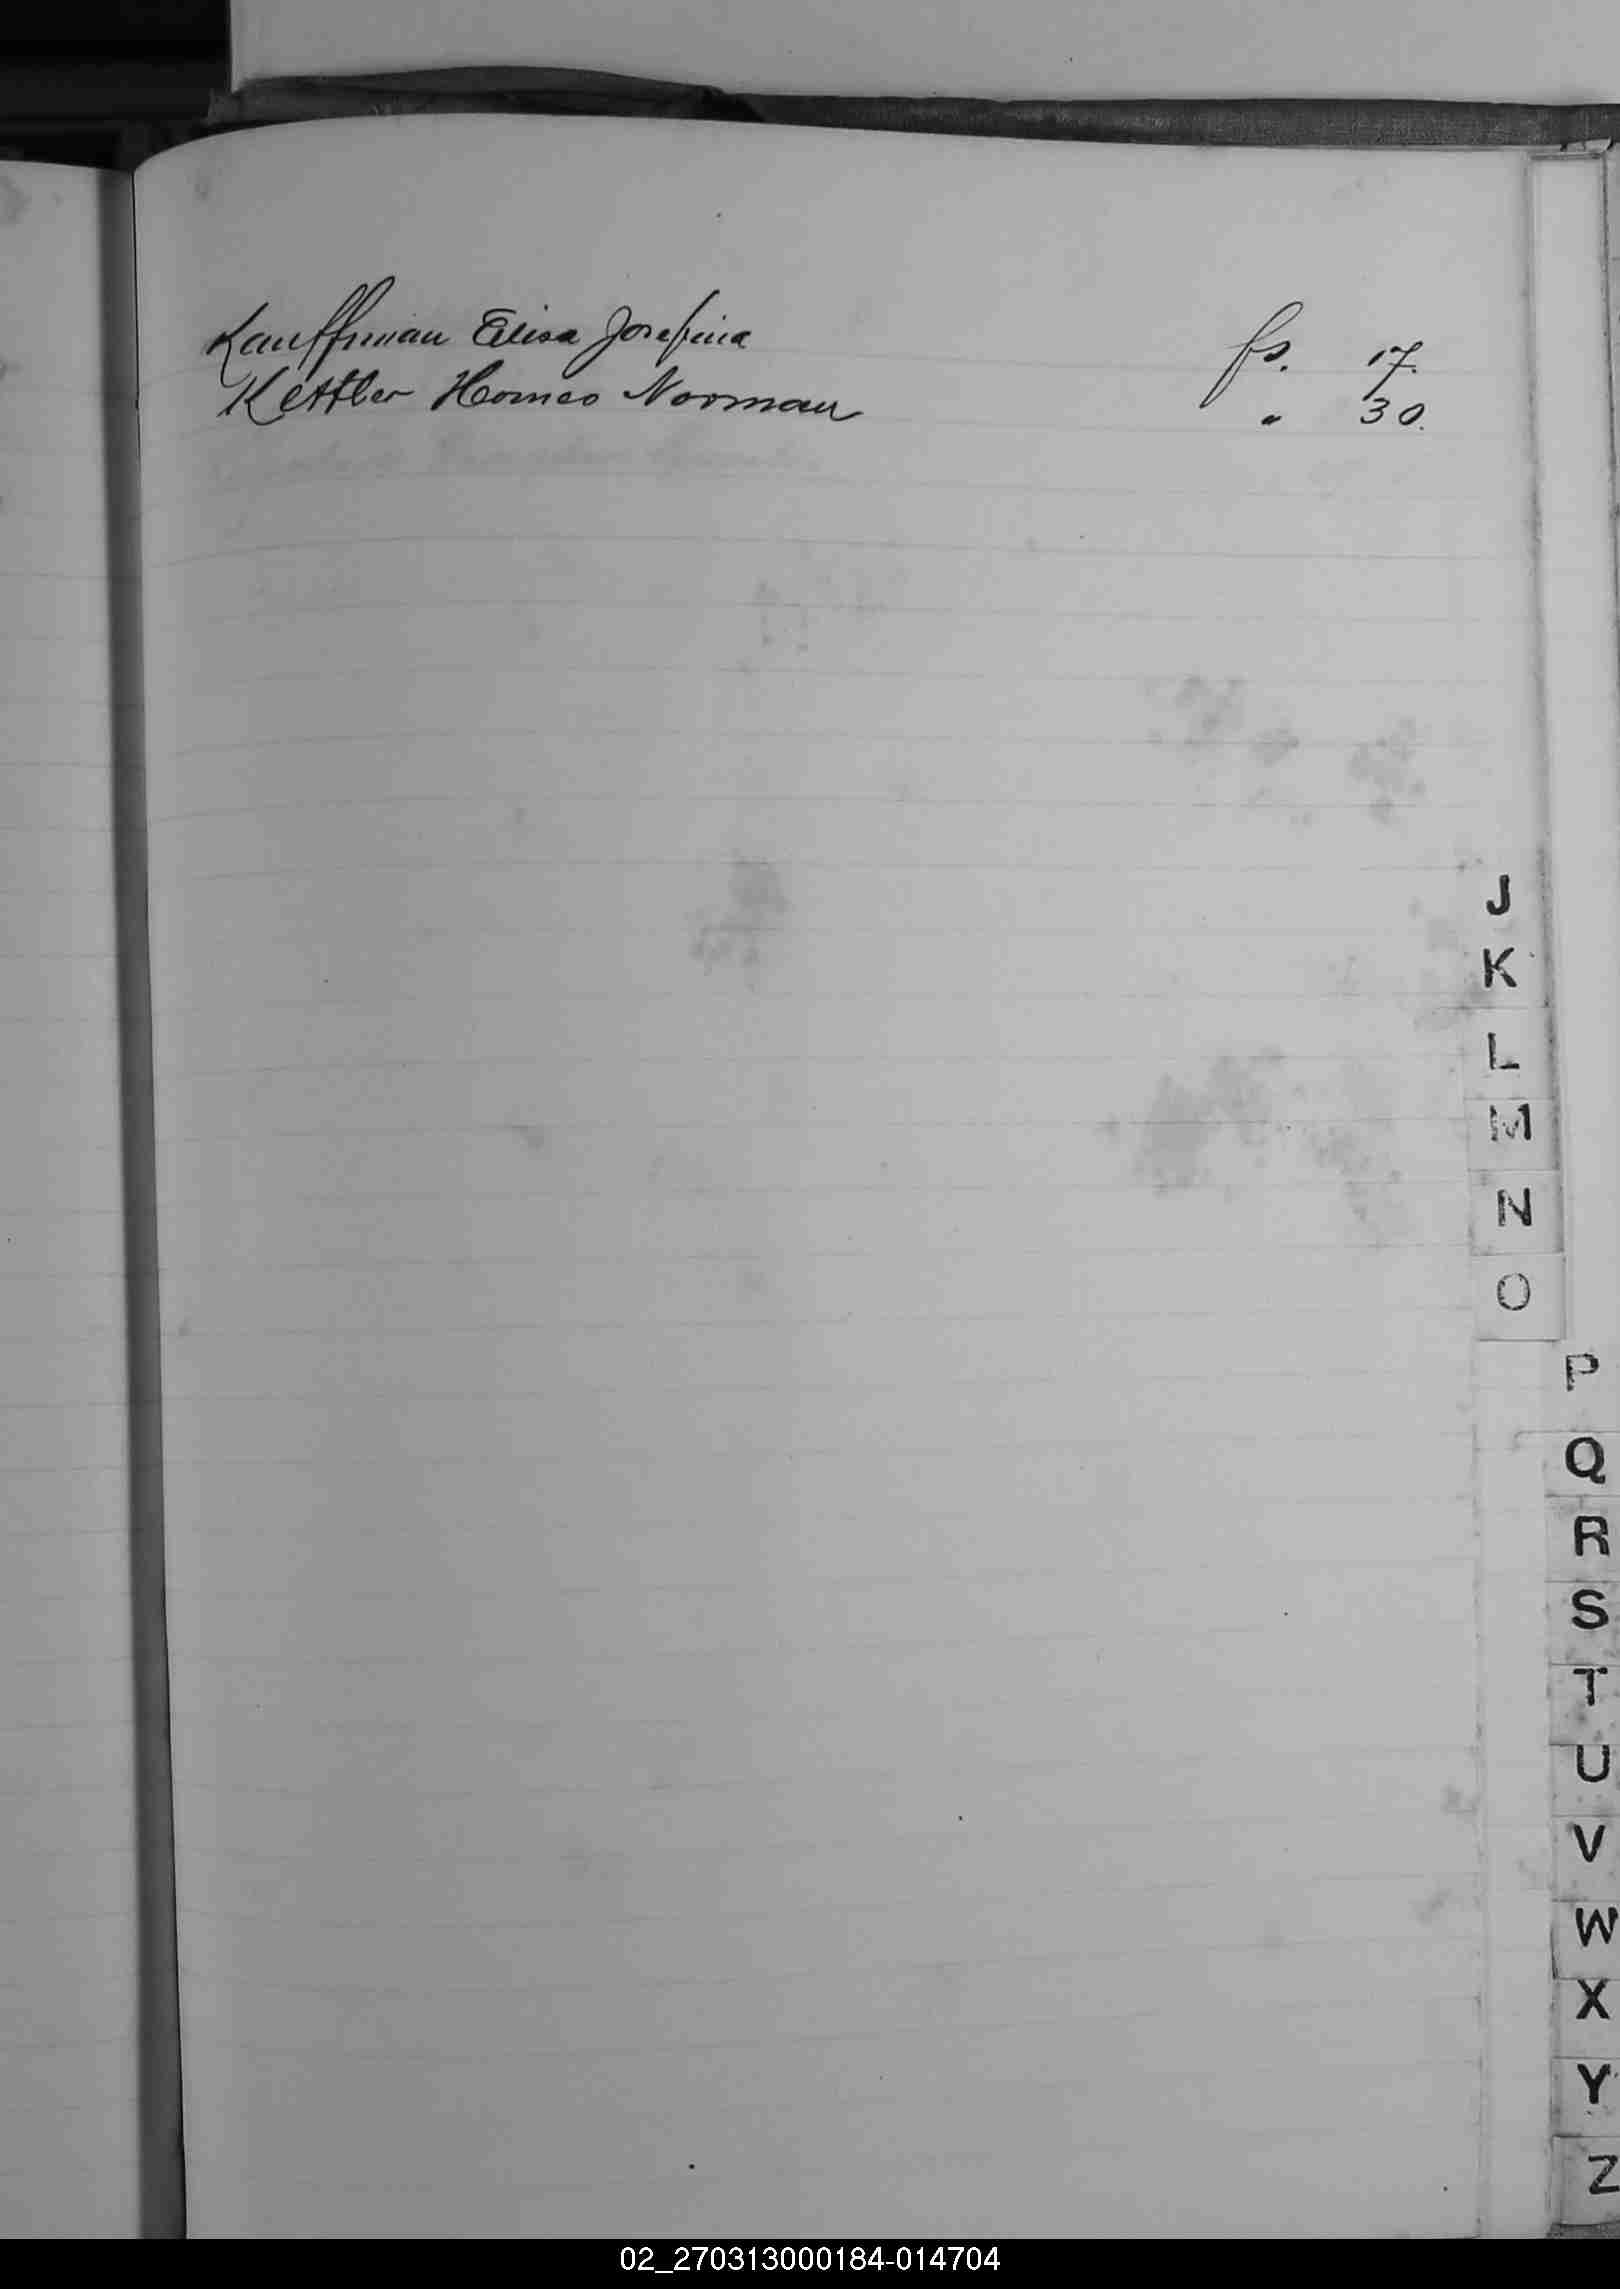 Kauffman Elisa Josefina fs. 17.
Kettler Homeo Norman " 30.
J
K
L
M
N
O
P
Q
R
S
T
U
V
W
X
Y
Z
02_270313000184-014704